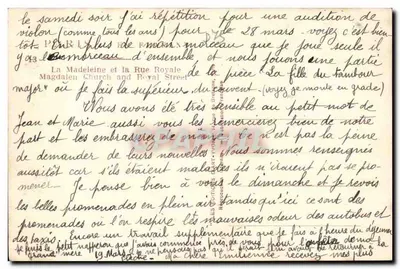 le samedi soir j'ai répétition pour une audition de
violon (comme tous les ans) pour de 28 mars. voyez c'est bien
tôt. En plus de mon morceau que je joue seule il
y a le morceau d'ensemble, et nous jouons une partie
La Madeleine et la Rue Royale
Magdalen Church and Royal Street
de la pièce La fille du tambour
major où je fais la supérieure du couvent. (voyez je monte en grade)
Nous avons été très sensible au petit mot de
Jean et Marie aussi vous les remercierez bien de notre
part et les embrasserez de même. ce n'est pas la peine
de demander de leurs nouvelles. Nous sommes renseignés
aussitôt car s'ils étaient malades ils n'iraient pas se pro-
mener. Je pense bien à vous le dimanche et je revois
les belles promenades en plein air tandis qu'ici ce sont des
promenades où l'on respire les mauvaises odeurs des autobus et
des taxis. Encore un travail supplémentaire que je fais à l'heure du déjeuner
je finis le petit napperon que j'avais commencé près de vous pour
grand'mère 19 Mars
l'Émilienne recevez mes plus